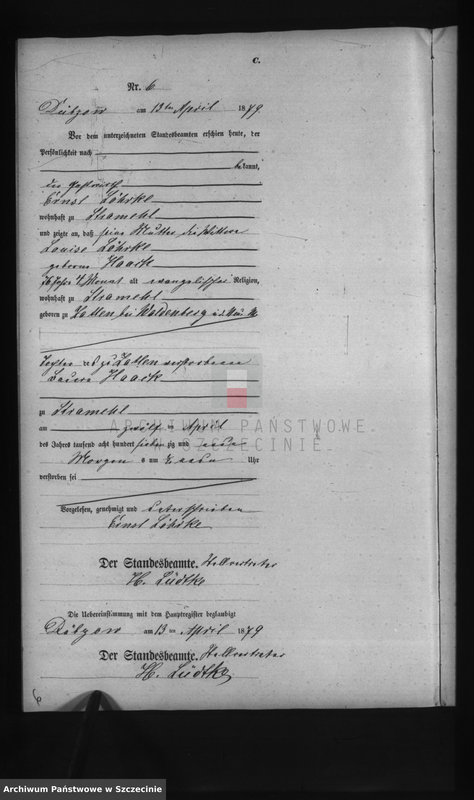 C.
Nr. 6
Dübzow am 13ten April 1879.
Vor dem unterzeichneten Standesbeamten erschien heute, der
Persönlichkeit nach
bekannt,
der Gastwirth
Ernst Löhrke
wohnhaft zu Stramehl
und zeigte an, daß seine Mutter die Wittwe
Louise Löhrke
geborene Haack
76 Jahr Monat alt evangelischer Religion,
wohnhaft zu Stramehl
geboren zu Zatten bei Woldenberg
Tochter des zu Zatten verstorbenen
Bauern Haack
zu Stramehl
am zwölften April
des Jahres tausend acht hundert siebenzig und neun
Morgens um neun Uhr
verstorben sei
Vorgelesen, genehmigt und unterschrieben
Ernst Löhrke
Der Standesbeamte. Stellvertreter
H. Lüdtke
Die Uebereinstimmung mit dem Hauptregister beglaubigt
Dübzow am 13ten April 1879
Der Standesbeamte. Stellvertreter
H. Lüdtke
6
ARCHIWUM PAŃSTWOWE
W SZCZECINIE
Archiwum Państwowe w Szczecinie